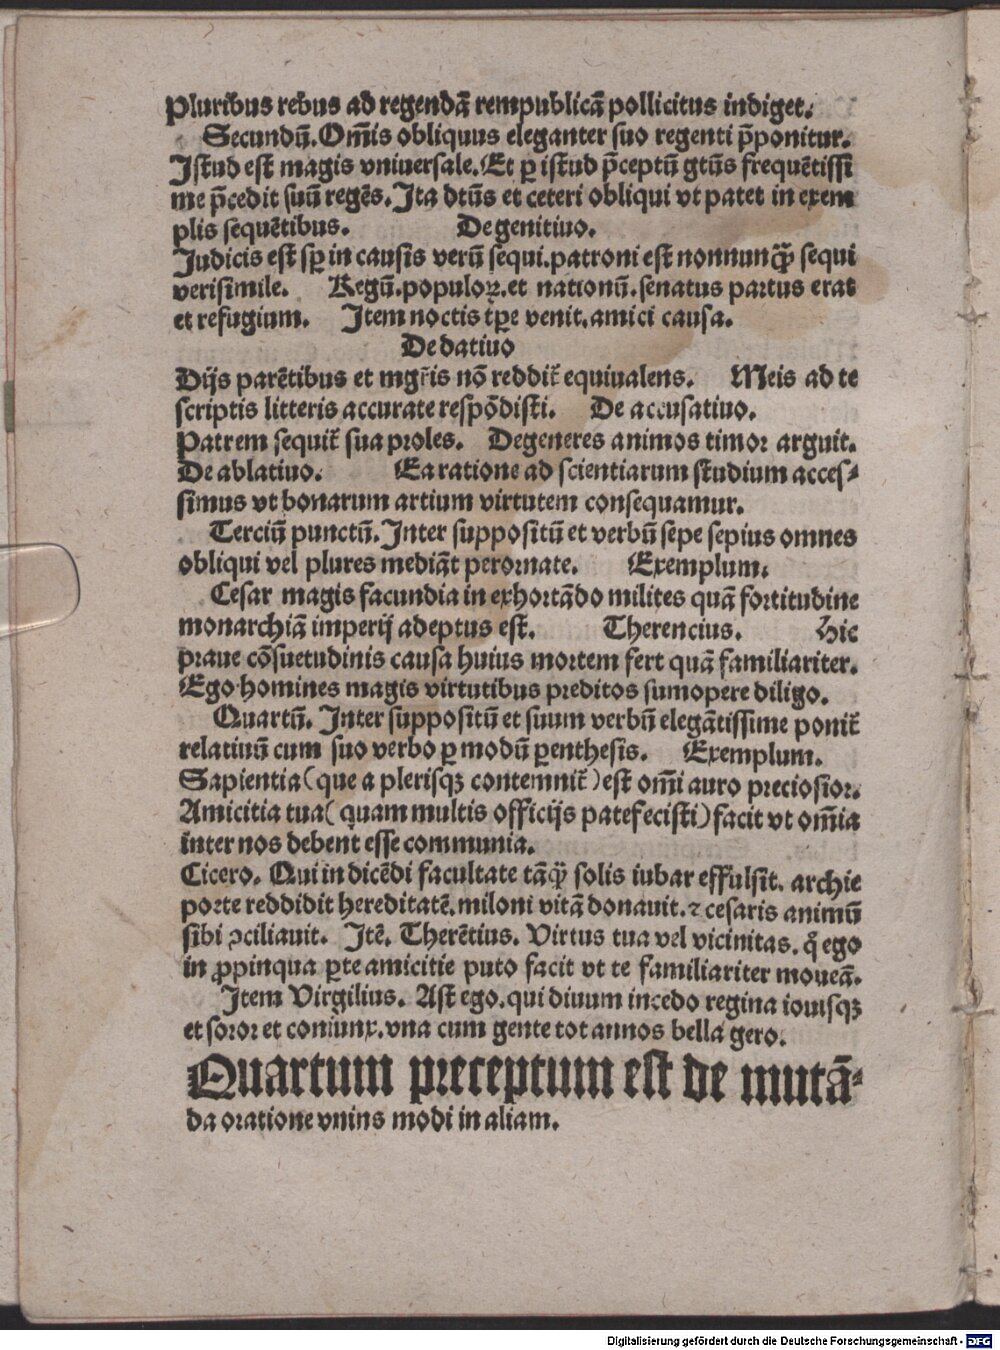 Pluribus rebus ad regendā rempublicā pollicitus indiget.
Secundū. Om̄is obliquus eleganter suo regenti p̄ponitur.
Istud est magis vniuersale. Et ꝑ istud p̄ceptū gtūs frequētissi
me p̄cedit suū regēs. Ita dtūs et ceteri obliqui vt patet in exem
plis sequētibus. De genitiuo.
Iudicis est sꝑ in causis verū sequi. patroni est nonnunꝙ̄ sequi
verisimile. Regū. populoꝝ. et nationū. senatus partus erat
et refugium. Item noctis tꝑe venit. amici causa.
De datiuo
Dijs parētibus et mgr̄is nō reddit᷑ equiualens. Meis ad te
scriptis litteris accurate respōdisti. De accusatiuo.
Patrem sequit᷑ sua proles. Degeneres animos timor arguit.
De ablatiuo. Ea ratione ad scientiarum studium acces⸗
simus vt bonarum artium virtutem consequamur.
Terciū punctū. Inter suppositū et verbū sepe sepius omnes
obliqui vel plures mediāt perornate. Exemplum.
Cesar magis facundia in exhortādo milites quā fortitudine
monarchiā imperij adeptus est. Therencius. Hic
praue cōsuetudinis causa huius mortem fert quā familiariter.
Ego homines magis virtutibus preditos sumopere diligo.
Quartū. Inter suppositū et suum verbū elegātissime ponit᷑
relatiuū cum suo verbo ꝑ modū ꝑenthesis. Exemplum.
Sapientia (que a plerisqꝫ contemnit᷑) est om̄i auro preciosior.
Amicitia tua (quam multis officijs patefecisti) facit vt om̄ia
inter nos debent esse communia.
Cicero. Qui in dicēdi facultate tāꝙ̄ solis iubar effulsit. archie
porte reddidit hereditatē. miloni vitā donauit. ⁊ cesaris animū
sibi ꝯciliauit. Itē. Therētius. Virtus tua vel vicinitas. q̄ ego
in ꝓpinqua ꝑte amicitie puto facit vt te familiariter moueā.
Item Virgilius. Ast ego. qui diuum incedo regina iouisqꝫ
et soror et coniunx. vna cum gente tot annos bella gero.
Quartum preceptum est de mutā⸗
da oratione vnius modi in aliam.
Digitalisierung gefördert durch die Deutsche Forschungsgemeinschaft - DFG